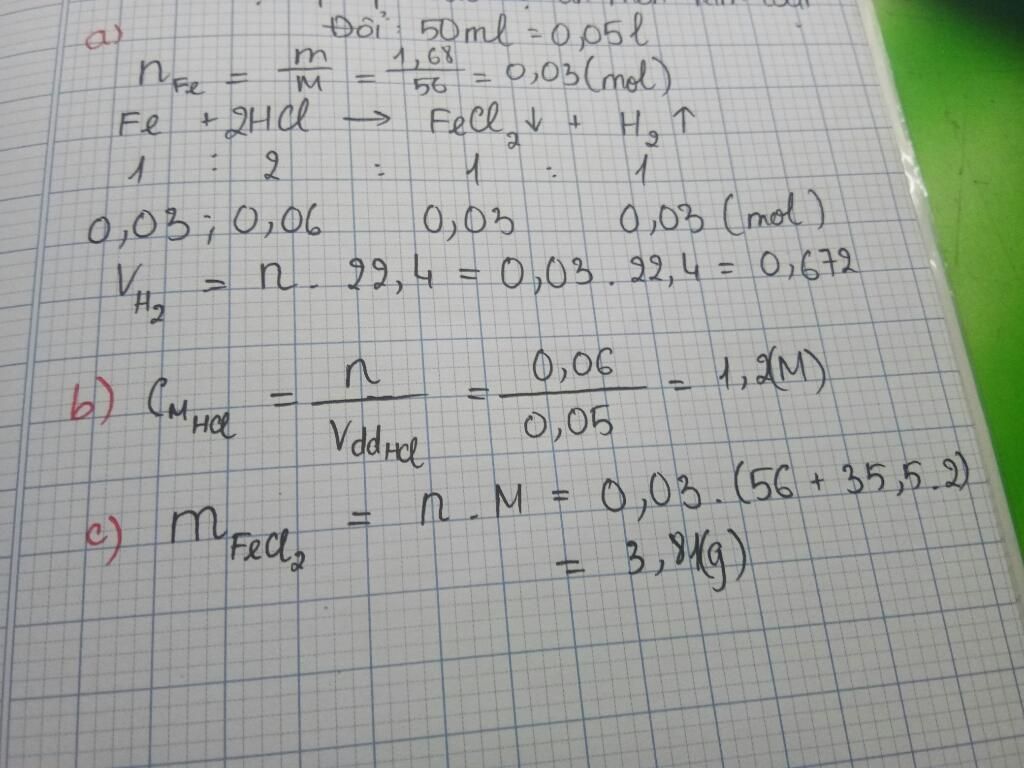 a) Đổi : 50ml = 0,05l
n Fe = m/M = 1,68/56 = 0,03 (mol)
Fe + 2HCl → FeCl₂↓ + H₂↑
1 : 2 : 1 : 1
0,03 ; 0,06 0,03 0,03 (mol)
V H₂ = n . 22,4 = 0,03 . 22,4 = 0,672
b) C M HCl = n/Vdd HCl = 0,06/0,05 = 1,2(M)
c) m FeCl₂ = n . M = 0,03 . (56 + 35,5 . 2)
= 3,81(g)